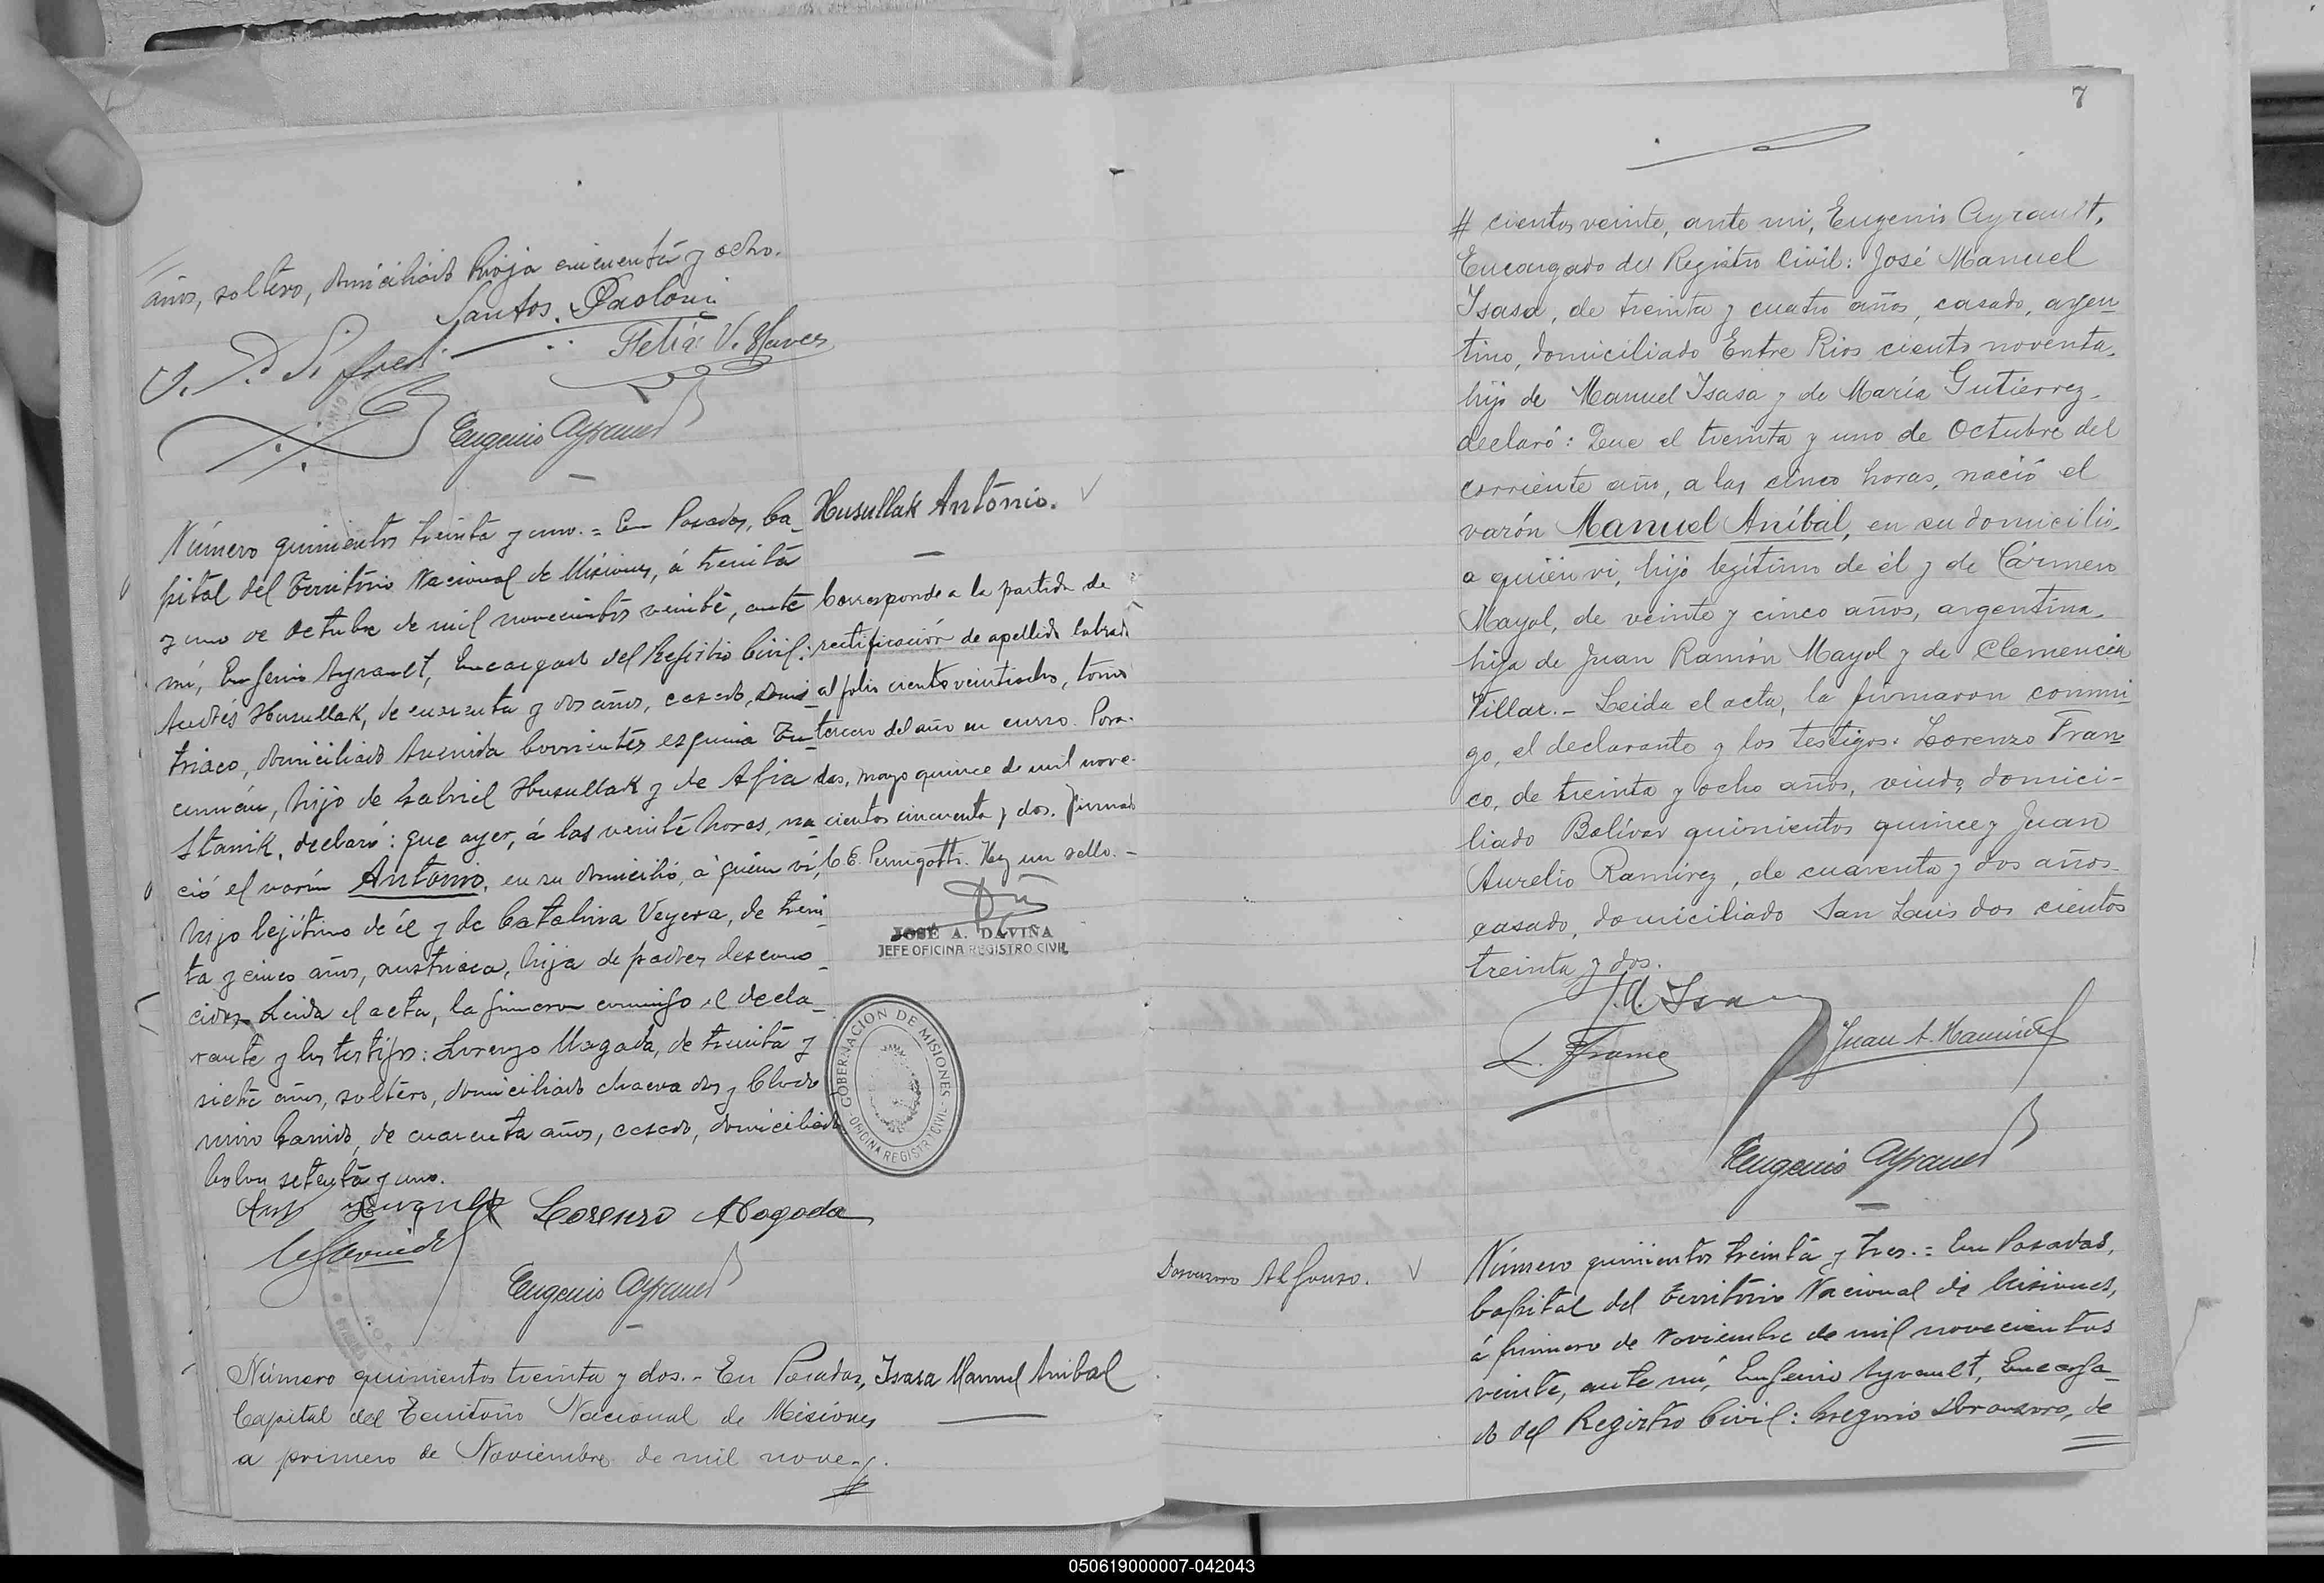 años, soltero, domiciliado Rioja cincuenta y ocho.
Santos Paoloni
Felix V.
Eugenio Ayrault
Husullak Antonio.
Número quinientos treinta y uno.= En Posadas, Ca_
pital del Territorio Nacional de Misiones, á treinta
y uno de Octubre de mil novecientos veinte, ante
mí, Eugenio Ayrault, Encargado del Registro Civil:
Andrés Husullak, de cuarenta y dos años, casado, aus_
triaco, domiciliado Avenida Corrientes esquina Tu_
cumán, hijo de Gabriel Husullak y de Afia
Stanik, declaró: que ayer, á las veinte horas, na_
ció el varón Antonio, en su domicilio, á quien ví,
hijo lejítimo de él y de Catalina Veyera, de trein_
ta y cinco años, austriaca, hija de padres descono_
cidos. Leida el acta, la firmaron conmigo el decla_
rante y los testigos: Lorenzo Mogada, de treinta y
siete años, soltero, domiciliado chacra dos y Clodo
miro Garrido, de cuarenta años, casado, domiciliado
Colon setenta y uno.
Corresponde a la partida de
rectificación de apellido labrada
al folio ciento veintiocho, tomo
tercero del año en curso. Posa-
das, mayo quince de mil nove-
cientos cincuenta y dos. firmado
C. E. Pernigotti. Hay un sello.-
JOSÉ A. DAVIÑA
JEFE OFICINA REGISTRO CIVIL
GOBERNACION DE MISIONES
OFICINA REGISTRO CIVIL
Lorenzo Mogoda
Eugenio Ayrault
Número quinientos treinta y dos.- En Posadas,
Isasa Manuel Anibal
Capital del Territorio Nacional de Misiones
a primero de Noviembre de mil nove-//
7
# cientos veinte, ante mi, Eugenio Ayrault,
Encargado del Registro Civil: José Manuel
Isasa, de treinta y cuatro años, casado, argen_
tino, domiciliado Entre Rios ciento noventa,
hijo de Manuel Isasa y de María Gutiérrez,
declaró: Que el treinta y uno de Octubre del
corriente año, a las cinco horas, nació el
varón Manuel Aníbal, en su domicilio,
a quien vi, hijo legítimo de él y de Cármen
Mayol, de veinte y cinco años, argentina,
hija de Juan Ramón Mayol y de Clemencia
Villar.- Leida el acta, la firmaron conmi_
go, el declarante y los testigos: Lorenzo Fran_
co, de treinta y ocho años, viudo, domici-
liado Bolívar quinientos quince y Juan
Aurelio Ramírez, de cuarenta y dos años
casado, domiciliado San Luis dos cientos
treinta y dos.
J. M. Isasa
L. Franco
Juan A. Ramirez
Eugenio Ayrault
Alfonso.
Número quinientos treinta y tres.= En Posadas,
Capital del Territorio Nacional de Misiones,
á primero de Noviembre de mil novecientos
veinte, ante mí, Eugenio Ayrault, Encarga_
do del Registro Civil: Gregorio de
050619000007-042043